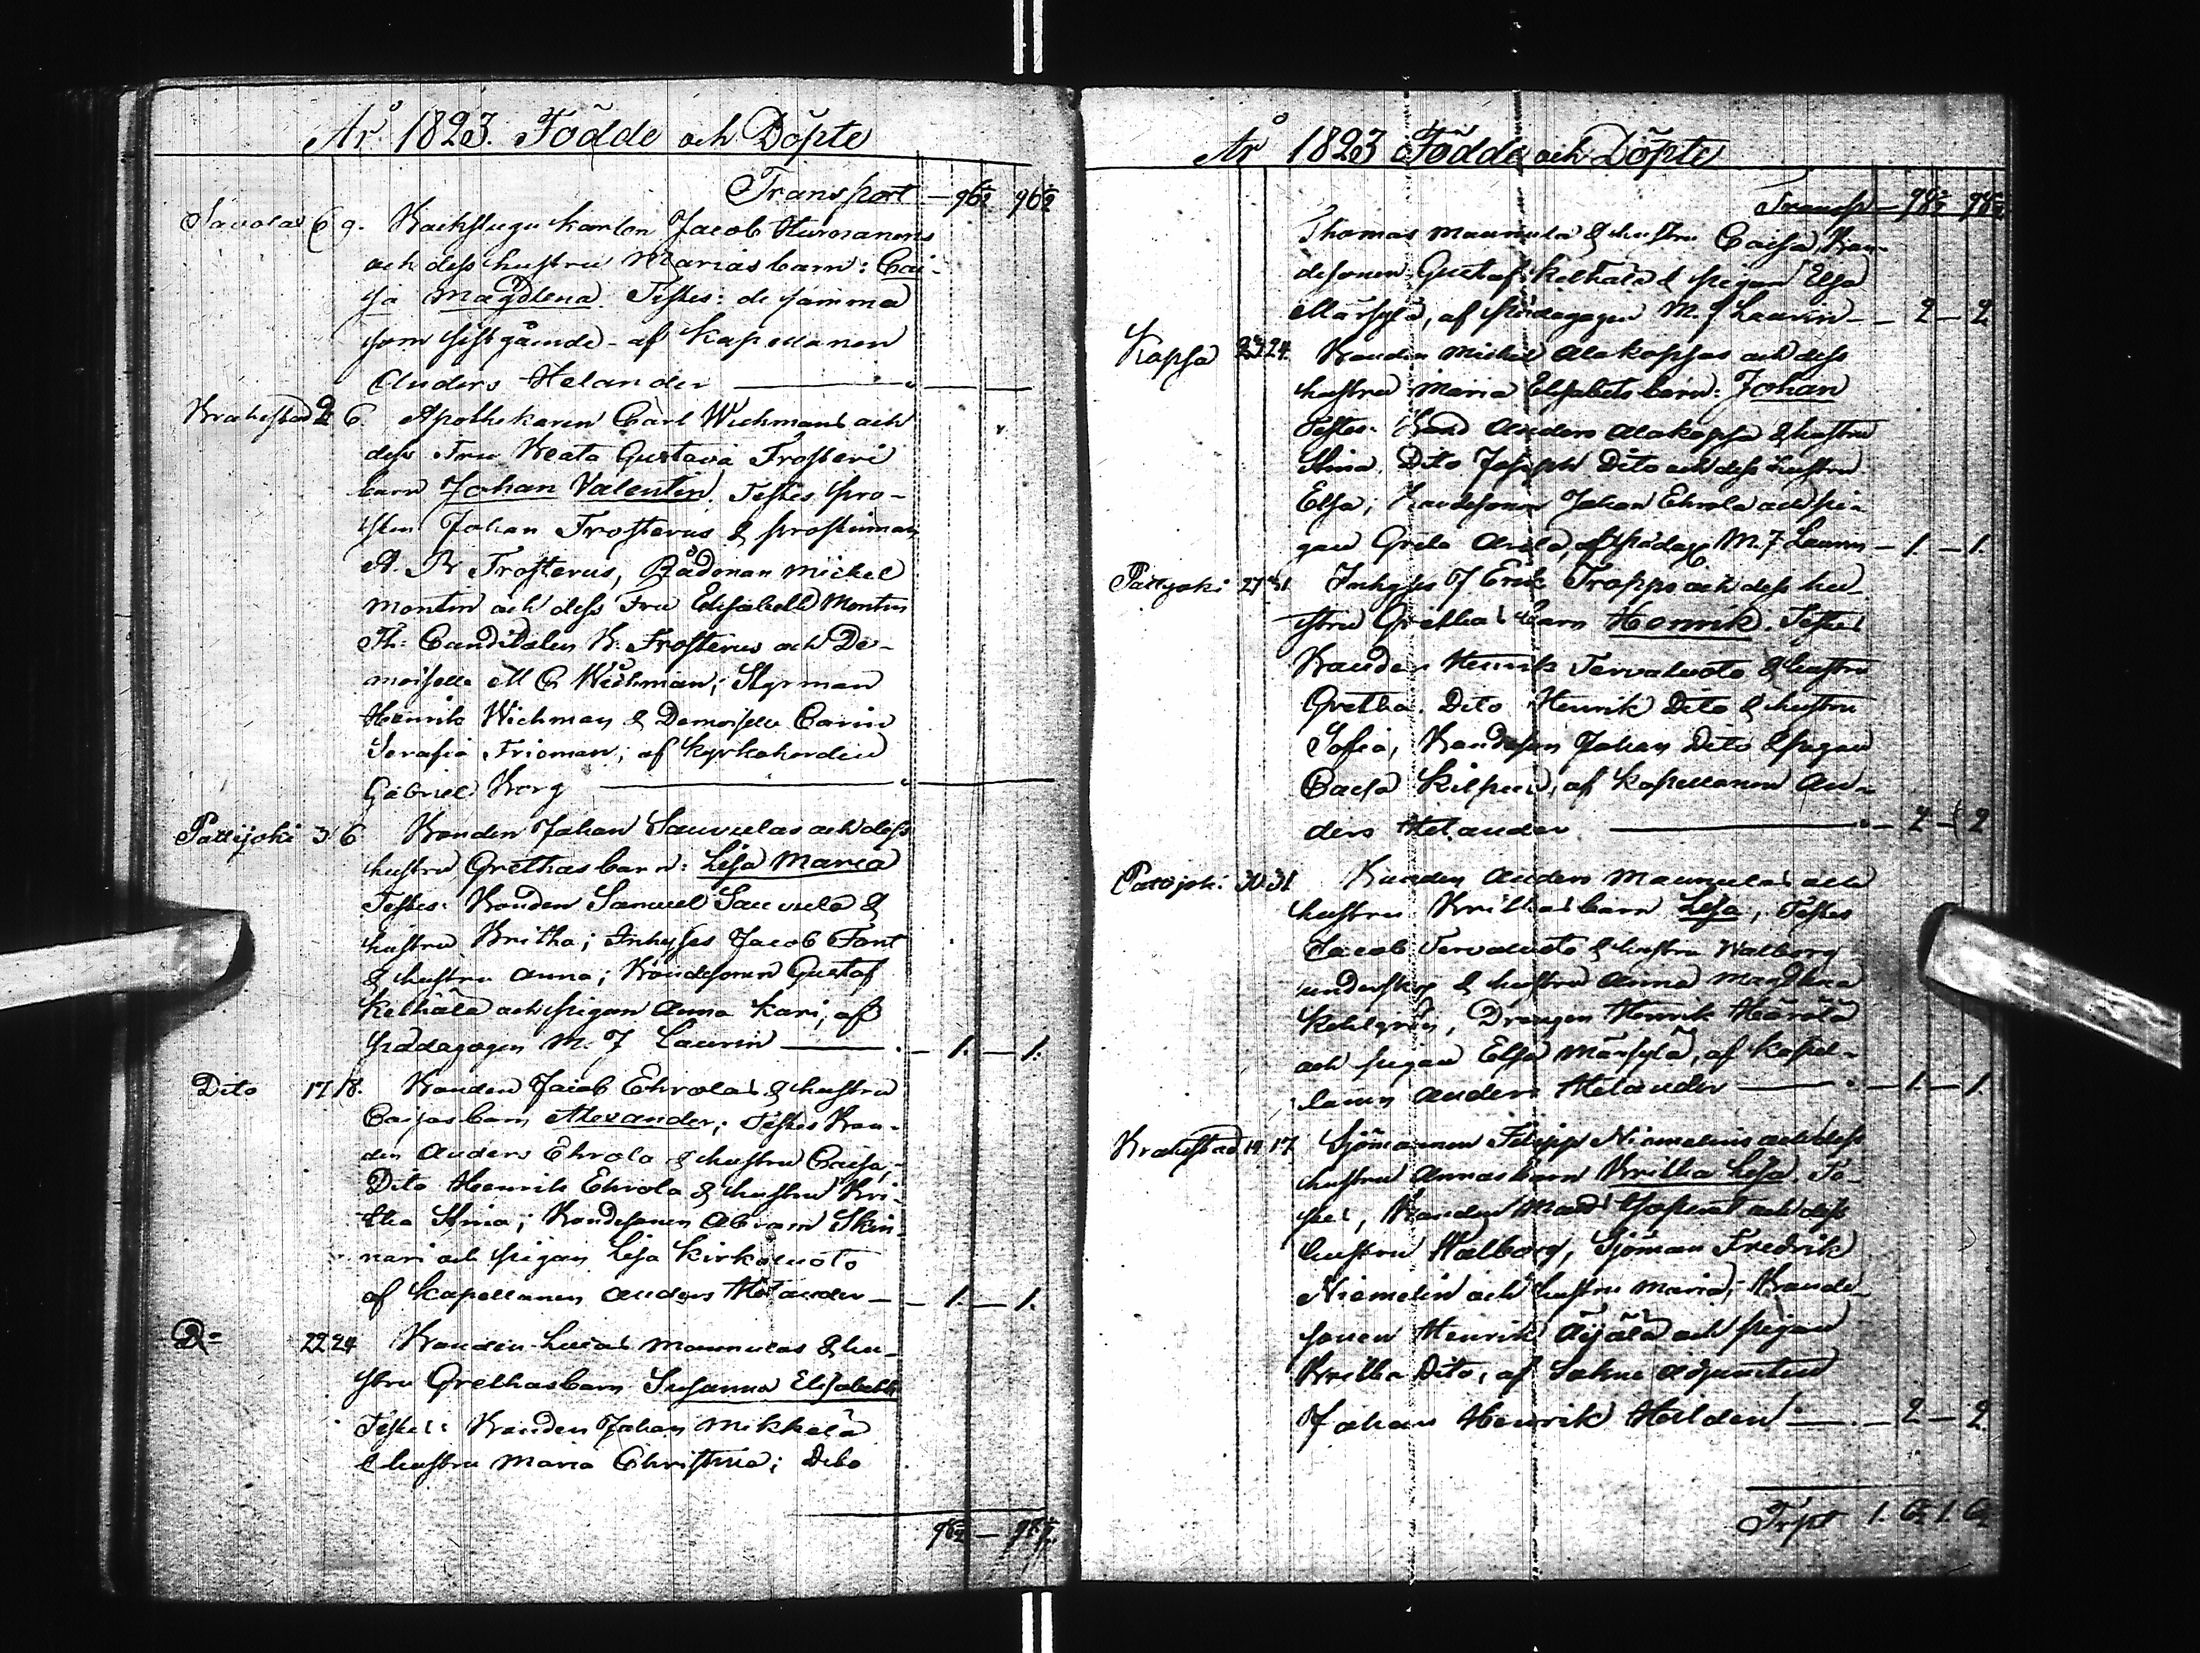 År 1823. Födde och Döpte
Transport — 96½ 96½
Savolax 6 9. Backstugu karlen Jacob Hurmanens
och dess hustru Marias barn: Cai-
sa Magdlena. Testes: de samma
som sistgående - af Kapellanen
Anders Helander
Brahestad 2 6. Apothekaren Carl Wichmans och
dess Fru Beata Gustava Frosteri
barn Johan Valentin. Testes pro-
sten Johan Frosterus & prostinnan
A. B Frosterus, Rådman Mickel
Montin och dess Fru Elisabeth Montin
Th: Candidaten B. Frosterus och De-
moiselle M C Wichman; Styrman
Henrik Wichman & Demoiselle Carin
Serafia Frieman; af kyrkoherden
Gabriel Borg
Pattijoki 3 6 Bonden Johan Sauvulas och dess
hustru Grethas barn: Lisa Maria
Testes: Bonden Samuel Sauvula &
hustru Britha; Inhyses Jacob Fant
& hustru Anna; Bondesonen Gustaf
Kelhälä och pigan Anna Kari, af
pädagogen M. J Laurin — 1. — 1.
Dito 17 18. Bonden Jacob Ehrolas & hustru
Caisas barn Alexander; Testes Bon-
den Anders Ehrola & hustru Caisa;
Dito Henrik Ehrola & hustru Bri-
tha Stina; Bondesonen Abram Skin-
nari och pigan Lisa Kirkoluoto
af Kapellanen Anders Helander — 1. — 1.
D:o 22 24 Bonden Lucas Maunulas & hu-
stru Grethas barn Susanna Elisabeth
Testes: Bonden Johan Mikkola
& hustru Maria Christina; Dito
98½ — 98½
År 1823 Födde och Döpte
Transp — 98½ — 98½
Thomas Maunula & hustru Caisa, Bon-
desonen Gustaf Kelhälä & pigan Elsa
Märsylä, af pädagogen M. J Laurin — 2 — 2
Kopsa 23 24. Bonden Michel Alakopsas och dess
hustru Maria Elisabets barn: Johan
Testes: Bond Anders Alakopsa & hustru
Stina. Dito Joseph Dito och dess hustru
Elsa; Bondesonen Johan Ehrola och pi-
gan Greta Ahola, af pädag M. J Laurin — 1 — 1.
Pattijoki 27 31 Inhyses J Erik Tropps och dess hu-
stru Grethas barn Henrik. Testes
Bonden Henrik Tervaluoto & hustru
Gretha. Dito Henrik Dito & hustru
Sofia, Bondeson Johan Dito & pigan
Caisa Kilpua, af Kapellanen An-
ders Helander — 2 — 2
Pattijoki 30 31 Bonden Anders Maunulas och
hustru Brithas barn Lisa; Testes
Jacob Tervaluoto & hustru Walborg
& hustru Anna Magdlena
Drengen Henrik Härölä
och pigan Elsa Märsylä, af Kapel-
lanen Anders Helander — 1. — 1.
Brahestad 14 17 Sjömannen Filipp Niemelins och dess
hustru Annas barn Britha Lisa. Te-
stes, Bonden Mats och dess
hustru Walborg, Sjöman Fredrik
Niemelin och hustru Maria; Bonde-
sonen Henrik Äijälä och pigan
Britha Dito, af Sokne adjuncten
Johan Henrik Hellden — 2 — 2
Trpt 1. 6½ 1. 6½